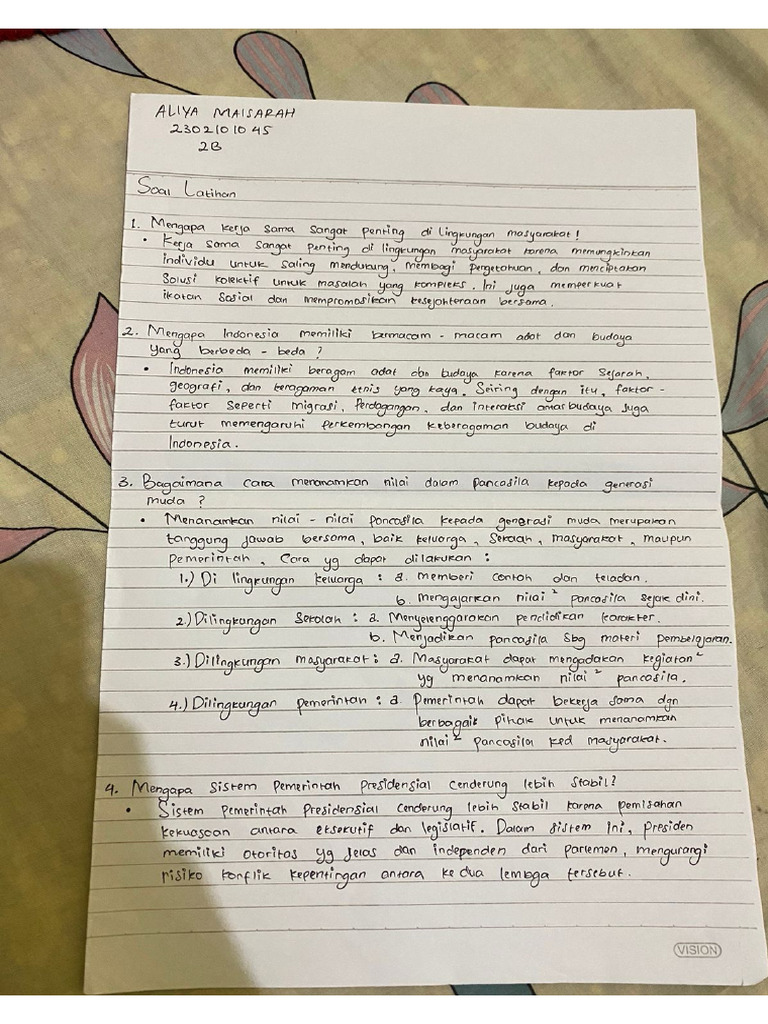 ALIYA MAISARAH
2302101045
2B
Soal Latihan
1. Mengapa kerja sama sangat penting di lingkungan masyarakat!
• Kerja sama sangat penting di lingkungan masyarakat karena memungkinkan
individu untuk saling mendukung, membagi pengetahuan, dan menciptakan
Solusi kolektif untuk masalah yang kompleks. Ini juga memperkuat
ikatan sosial dan mempromosikan kesejahteraan bersama.
2. Mengapa Indonesia memiliki bermacam - macam adat dan budaya
yang berbeda - beda ?
• Indonesia memiliki beragam adat dan budaya karena faktor sejarah,
geografi, dan keragaman etnis yang kaya. Seiring dengan itu, faktor -
faktor seperti migrasi, Perdagangan, dan interaksi antarbudaya juga
turut memengaruhi perkembangan keberagaman budaya di
Indonesia.
3. Bagaimana cara menanamkan nilai dalam pancasila kepada generasi
muda ?
• Menanamkan nilai - nilai pancasila kepada generasi muda merupakan
tanggung jawab bersama, baik keluarga, Sekolah, masyarakat, maupun
pemerintah, Cara yg dapat dilakukan :
1.) Di lingkungan keluarga : a. memberi contoh dan teladan.
b. mengajarkan nilai² pancasila sejak dini.
2.) Dilingkungan Sekolah : a. Menyelenggarakan pendidikan karakter.
b. Menjadikan pancasila sbg materi pembelajaran.
3.) Dilingkungan masyarakat : a. Masyarakat dapat mengadakan kegiatan²
yg menanamkan nilai² pancasila.
4.) Dilingkungan pemerintah : a. Pemerintah dapat bekerja sama dgn
berbagaik pihak untuk menanamkan
nilai² pancasila kpd masyarakat.
4. Mengapa Sistem Pemerintah Presidensial cenderung lebih stabil?
• Sistem pemerintah Presidensial cenderung lebih stabil karena pemisahan
kekuasaan antara eksekutif dan legislatif. Dalam sistem ini, presiden
memiliki otoritas yg jelas dan independen dari parlemen, mengurangi
risiko konflik kepentingan antara kedua lembaga tersebut.
VISION